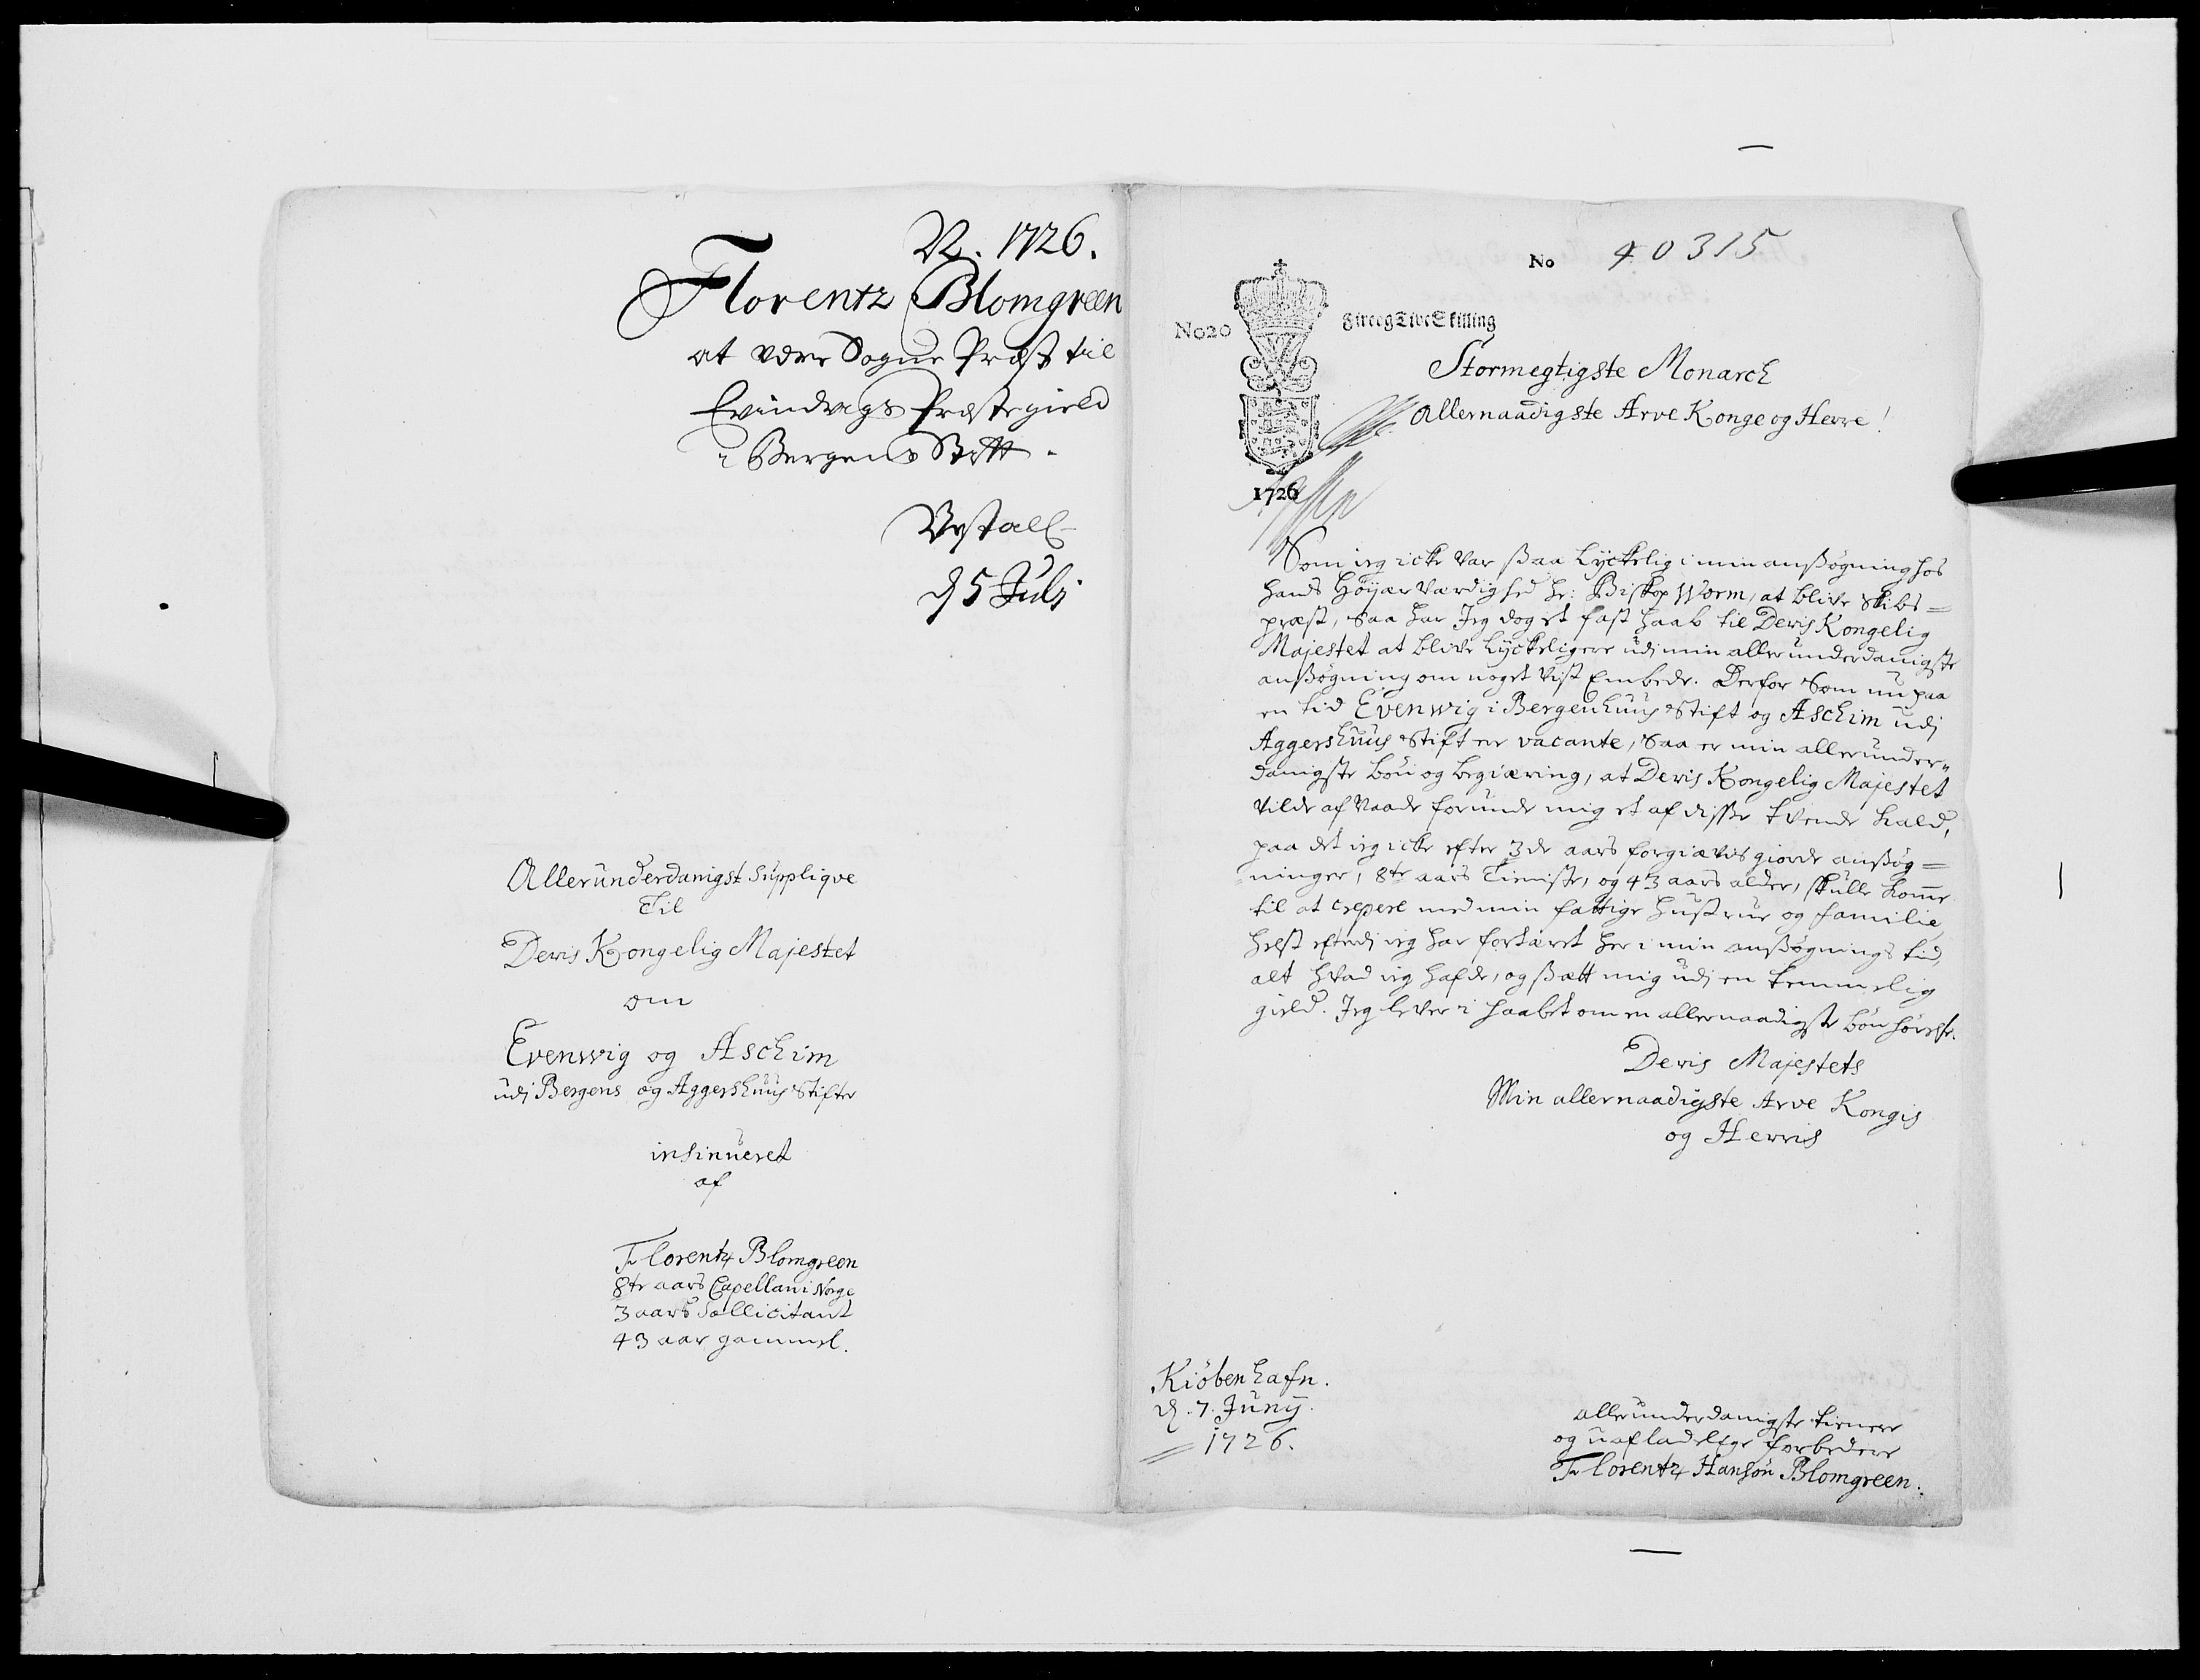 N. 1726.
Florentz Blomgreen
at være Sogne Præst til
Evindvigs Præstegield
i Bergens Stift.
d 5 Julj
Allerunderdanigst Supplique
Til
Deris Kongelig Majestet
om
Evenwig og Aschim
udj Bergens og Aggershuus Stifter
insinueret
af
Florentz Blomgreen
8te aars Capellan i Norge
3 aars Sollicitant
43 aar gammel.
No 40315
No20 Fire og Tive Skilling
Stormegtigste Monarch
Allernaadigste Arve Konge og Herre!
1726
Som ieg icke var ßaa Lyckelig i min anßögning hos
Hands Höyærværdighed hr: Biskop Worm, at blive Skibs=
præst, saa har Jeg dog et fast haab til Deris Kongelig
Majestet at blive Lyckeligere udj min allerunderdanigste
anßögning om noget vist Embede. Derfor som nu paa
en tid Evenwig i Bergenhuus Stift og Aschim udj
Aggershuus Stift er vacante, saa er min allerunder„
danigste bön og begiæring, at Deris Kongelig Majestet
vilde af Naade forunde mig et af disse tvende kald,
paa det ieg icke efter 3de aars forgiæves giorde anßög=
ninger, 8te aars Tieniste, og 43 aars alder, skulle komme
til at crepere med min fattige hustrue og familie
helst efterdj ieg har fortæret her i min anßögnings tid,
alt hvad ieg hafde, og ßatt mig udj en temmelig
gield. Jeg lever i haabet om en allernaadigste bön hörelse.
Deris Majestets
Min allernaadigste Arve Kongis
og Herris
Kiöbenhafn.
d. 7. Junij.
1726.
allerunderdanigste tienere
og uafladelige forbedere
Florentz Hansön Blomgreen.